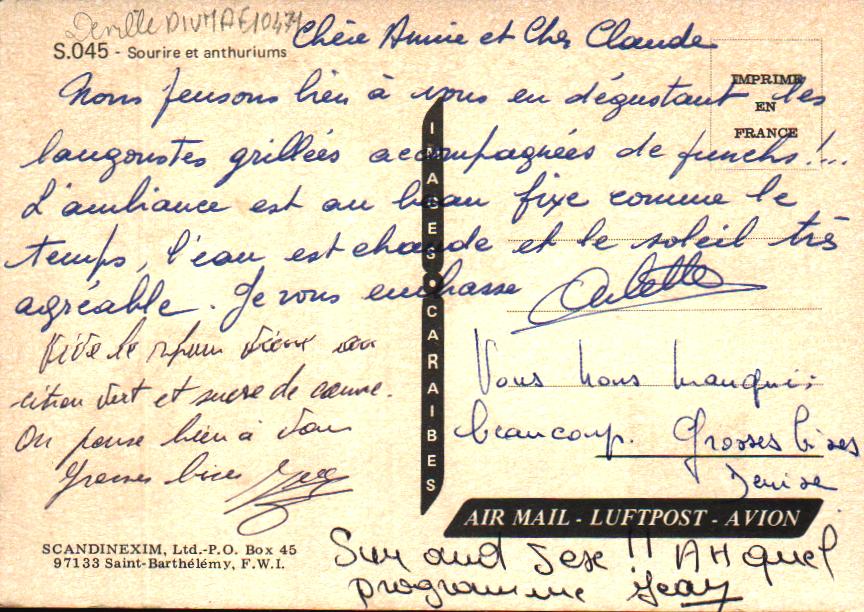 Deville DIVMAE10471
S.045 - Sourire et anthuriums
Chère Annie et Cher Claude
IMPRIMÉ
EN
FRANCE
Nous pensons bien à vous en dégustant les
langoustes grillées accompagnées de punchs!...
L'ambiance est au beau fixe comme le
temps, l'eau est chaude et le soleil très
agréable. Je vous embrasse Arlette
Vive le rhum vieux au
citron vert et sucre de canne.
On pense bien à vous
Grosses bises
Vous nous manquez
beaucoup. Grosses bises
Denise
Sun and Sexe !! AH quel
programme Jean
IMAGES CARAIBES
AIR MAIL - LUFTPOST - AVION
SCANDINEXIM, Ltd.-P.O. Box 45
97133 Saint-Barthélémy, F.W.I.